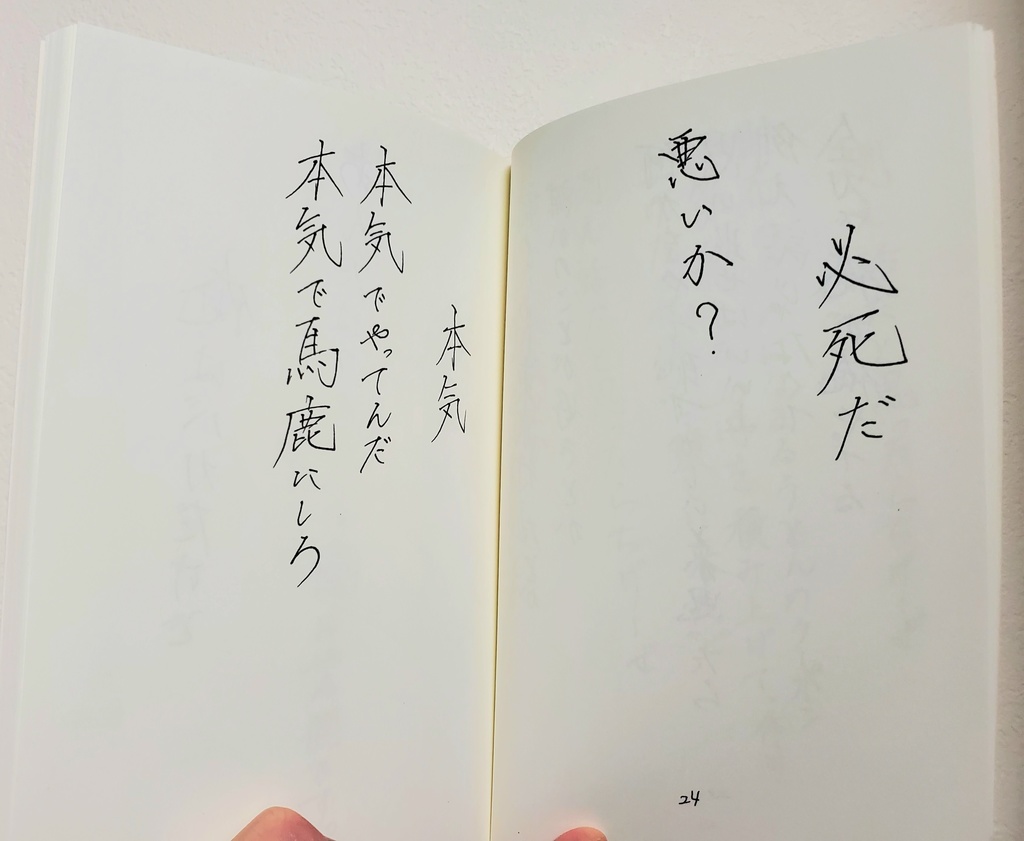 必死だ
悪いか？
24
本気
本気でやってんだ
本気で馬鹿にしろ